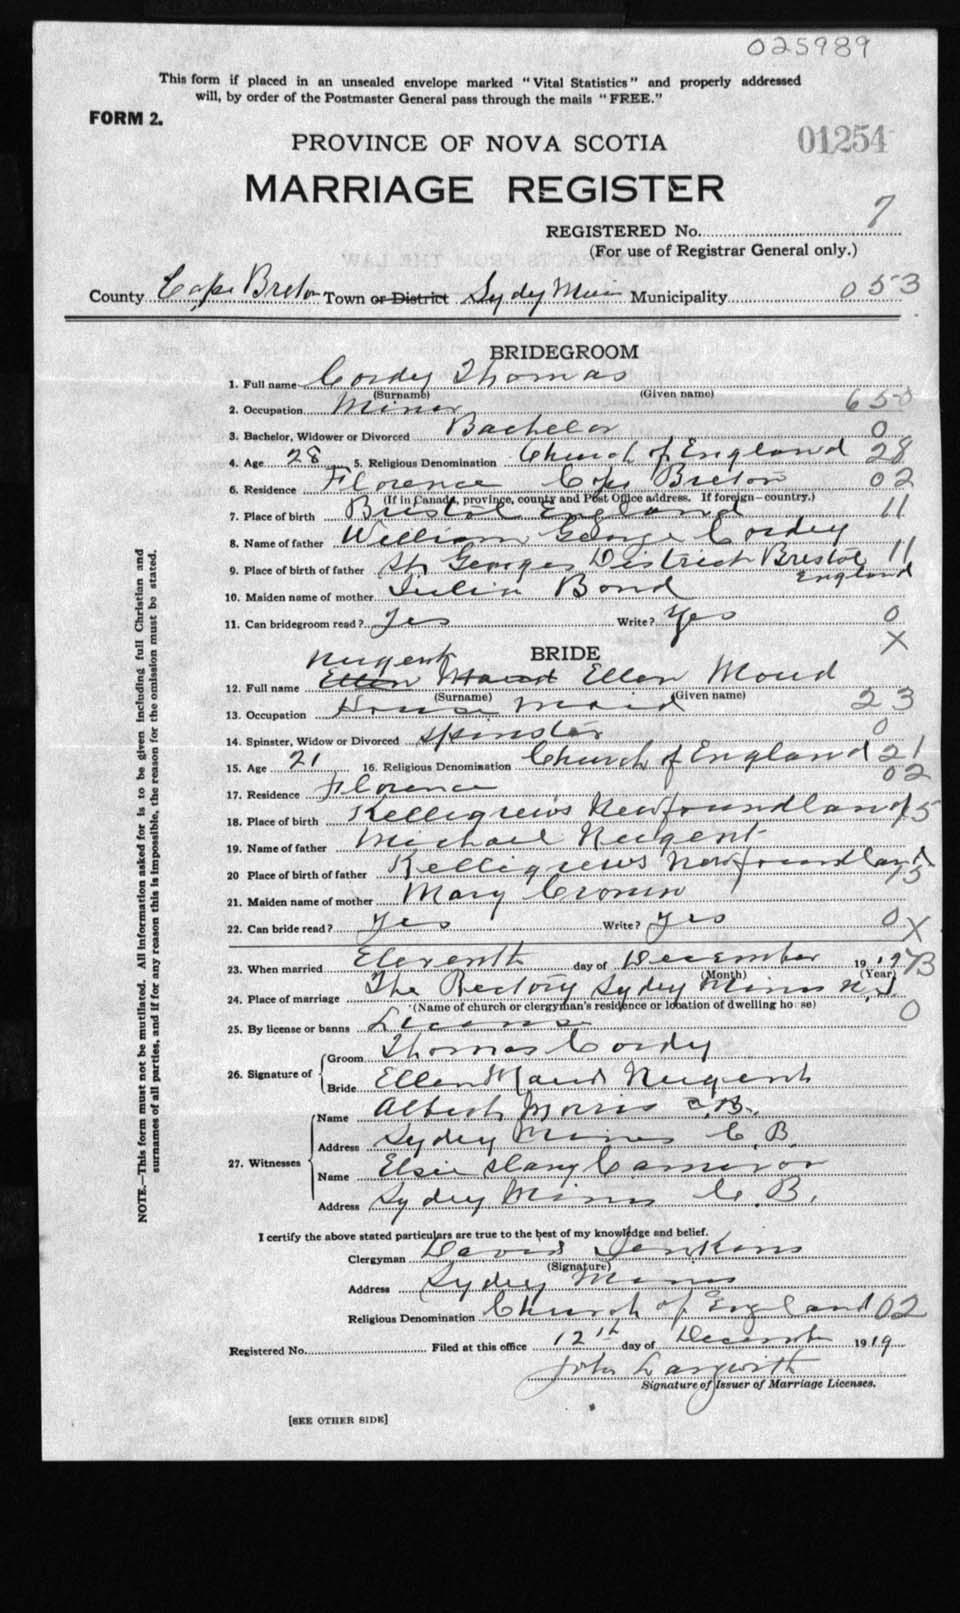 025989
This form if placed in an unsealed envelope marked "Vital Statistics" and properly addressed
will, by order of the Postmaster General pass through the mails "FREE."
FORM 2.
01254
PROVINCE OF NOVA SCOTIA
MARRIAGE REGISTER
REGISTERED No. 7
(For use of Registrar General only.)
County Cape Breton Town or District Sydney Mines Municipality 053
BRIDEGROOM
1. Full name Cordey Thomas
(Surname) (Given name)
2. Occupation Miner 650
3. Bachelor, Widower or Divorced Bachelor 0
4. Age 28 5. Religious Denomination Church of England 28
6. Residence Florence Cape Breton 02
(If in Canada, province, county and Post Office address. If foreign—country.)
7. Place of birth Bristol England 11
8. Name of father William George Cordey
9. Place of birth of father St. Georges District Bristol England 11
10. Maiden name of mother Julia Bond
11. Can bridegroom read? Yes Write? Yes 0
X
BRIDE
Nugent
12. Full name Ellen Maud Ellen Maud
(Surname) (Given name)
13. Occupation House Maid 23
14. Spinster, Widow or Divorced Spinster 0
15. Age 21 16. Religious Denomination Church of England 21
17. Residence Florence 02
18. Place of birth Kelligrews Newfoundland 15
19. Name of father Michael Nugent
20 Place of birth of father Kelligrews Newfoundland 15
21. Maiden name of mother Mary Cronin
22. Can bride read? yes Write? yes 0 X
23. When married Eleventh day of December 1919 73
(Month) (Year)
24. Place of marriage The Rectory Sydney Mines N.S.
(Name of church or clergyman's residence or location of dwelling house)
25. By license or banns License 0
26. Signature of Groom Thomas Cordy
Bride Ellen Maud Nugent
27. Witnesses Name Albert Morris C.B.
Address Sydney Mines C.B.
Name Elsie Mary Cameron
Address Sydney Mines C.B.
I certify the above stated particulars are true to the best of my knowledge and belief.
Clergyman David Jenkins
(Signature)
Address Sydney Mines
Religious Denomination Church of England 02
Registered No. Filed at this office 12th day of December 1919
John
Signature of Issuer of Marriage Licenses.
[SEE OTHER SIDE]
NOTE.—This form must not be mutilated. All information asked for is to be given including full Christian and
surnames of all parties, and if for any reason this is impossible, the reason for the omission must be stated.